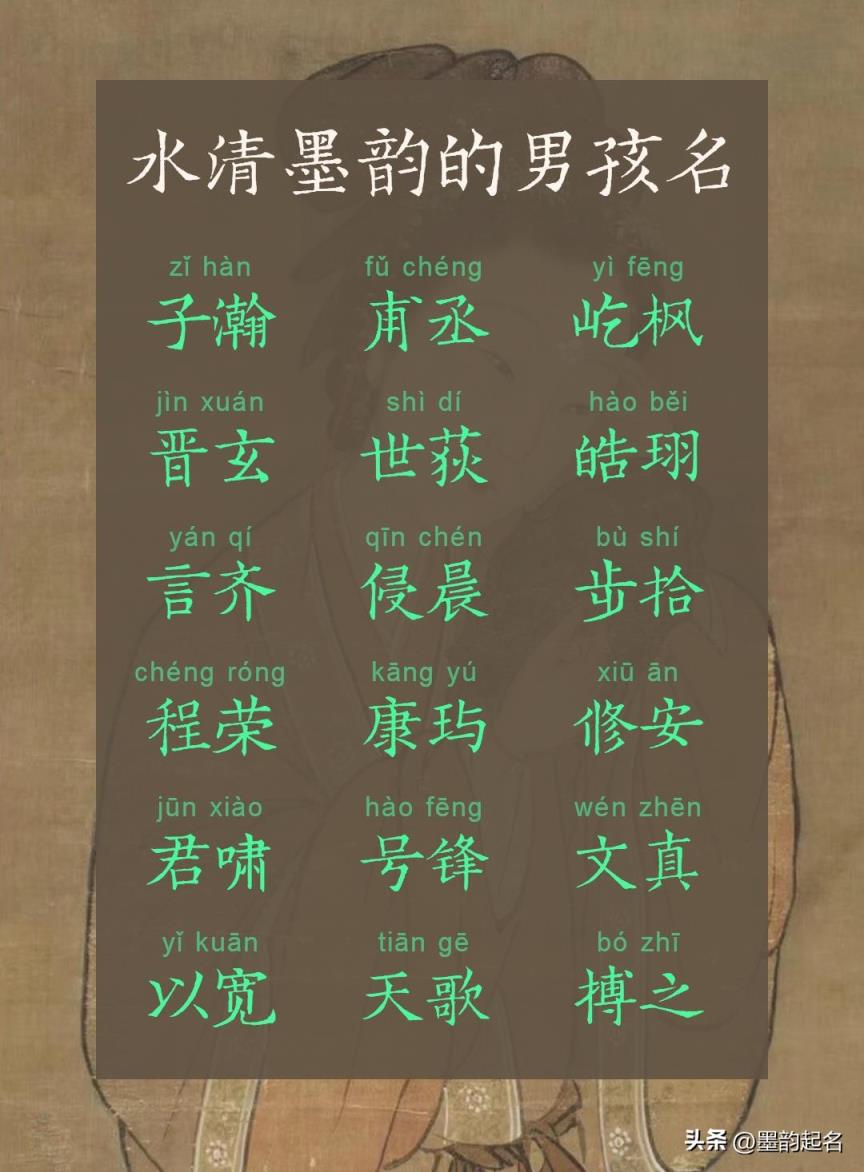 水清墨韵的男孩名
zǐ hàn fǔ chéng yì fēng
子瀚 甫丞 屹枫
jìn xuán shì dí hào běi
晋玄 世荻 皓珝
yán qí qīn chén bù shí
言齐 侵晨 步拾
chéng róng kāng yú xiū ān
程荣 康玙 修安
jūn xiào hào fēng wén zhēn
君啸 号锋 文真
yǐ kuān tiān gē bó zhī
以宽 天歌 搏之
头条 @墨韵起名